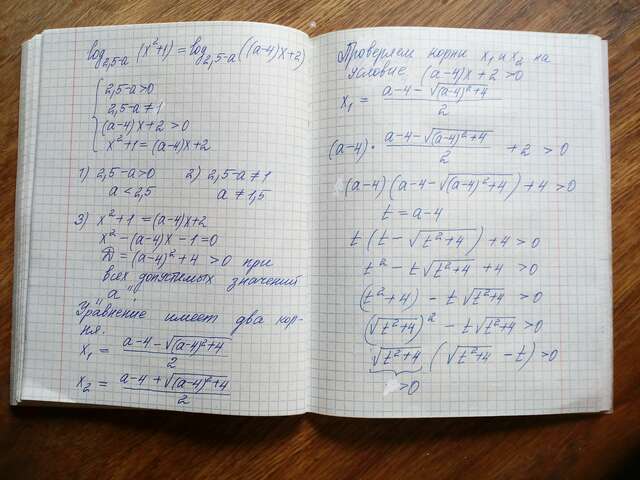 log₂,₅₋ₐ (x²+1) = log₂,₅₋ₐ ((a-4)x+2)
2,5-a>0
2,5-a≠1
(a-4)x+2>0
x²+1=(a-4)x+2
1) 2,5-a>0 2) 2,5-a≠1
a<2,5 a≠1,5
3) x²+1=(a-4)x+2
x²-(a-4)x-1=0
D=(a-4)²+4>0 при
всех допустимых значений
"a"
Уравнение имеет два кор-
ня:
x₁ = (a-4-√((a-4)²+4))/2
x₂ = (a-4+√((a-4)²+4))/2
Проверяем корни x₁ и x₂ на
условие (a-4)x+2>0
x₁ = (a-4-√((a-4)²+4))/2
(a-4)·(a-4-√((a-4)²+4))/2 +2 >0
(a-4)(a-4-√((a-4)²+4))+4>0
t=a-4
t(t-√(t²+4))+4>0
t²-t√(t²+4)+4>0
(t²+4)-t√(t²+4)>0
(√(t²+4))²-t√(t²+4)>0
√(t²+4)(√(t²+4)-t)>0
>0